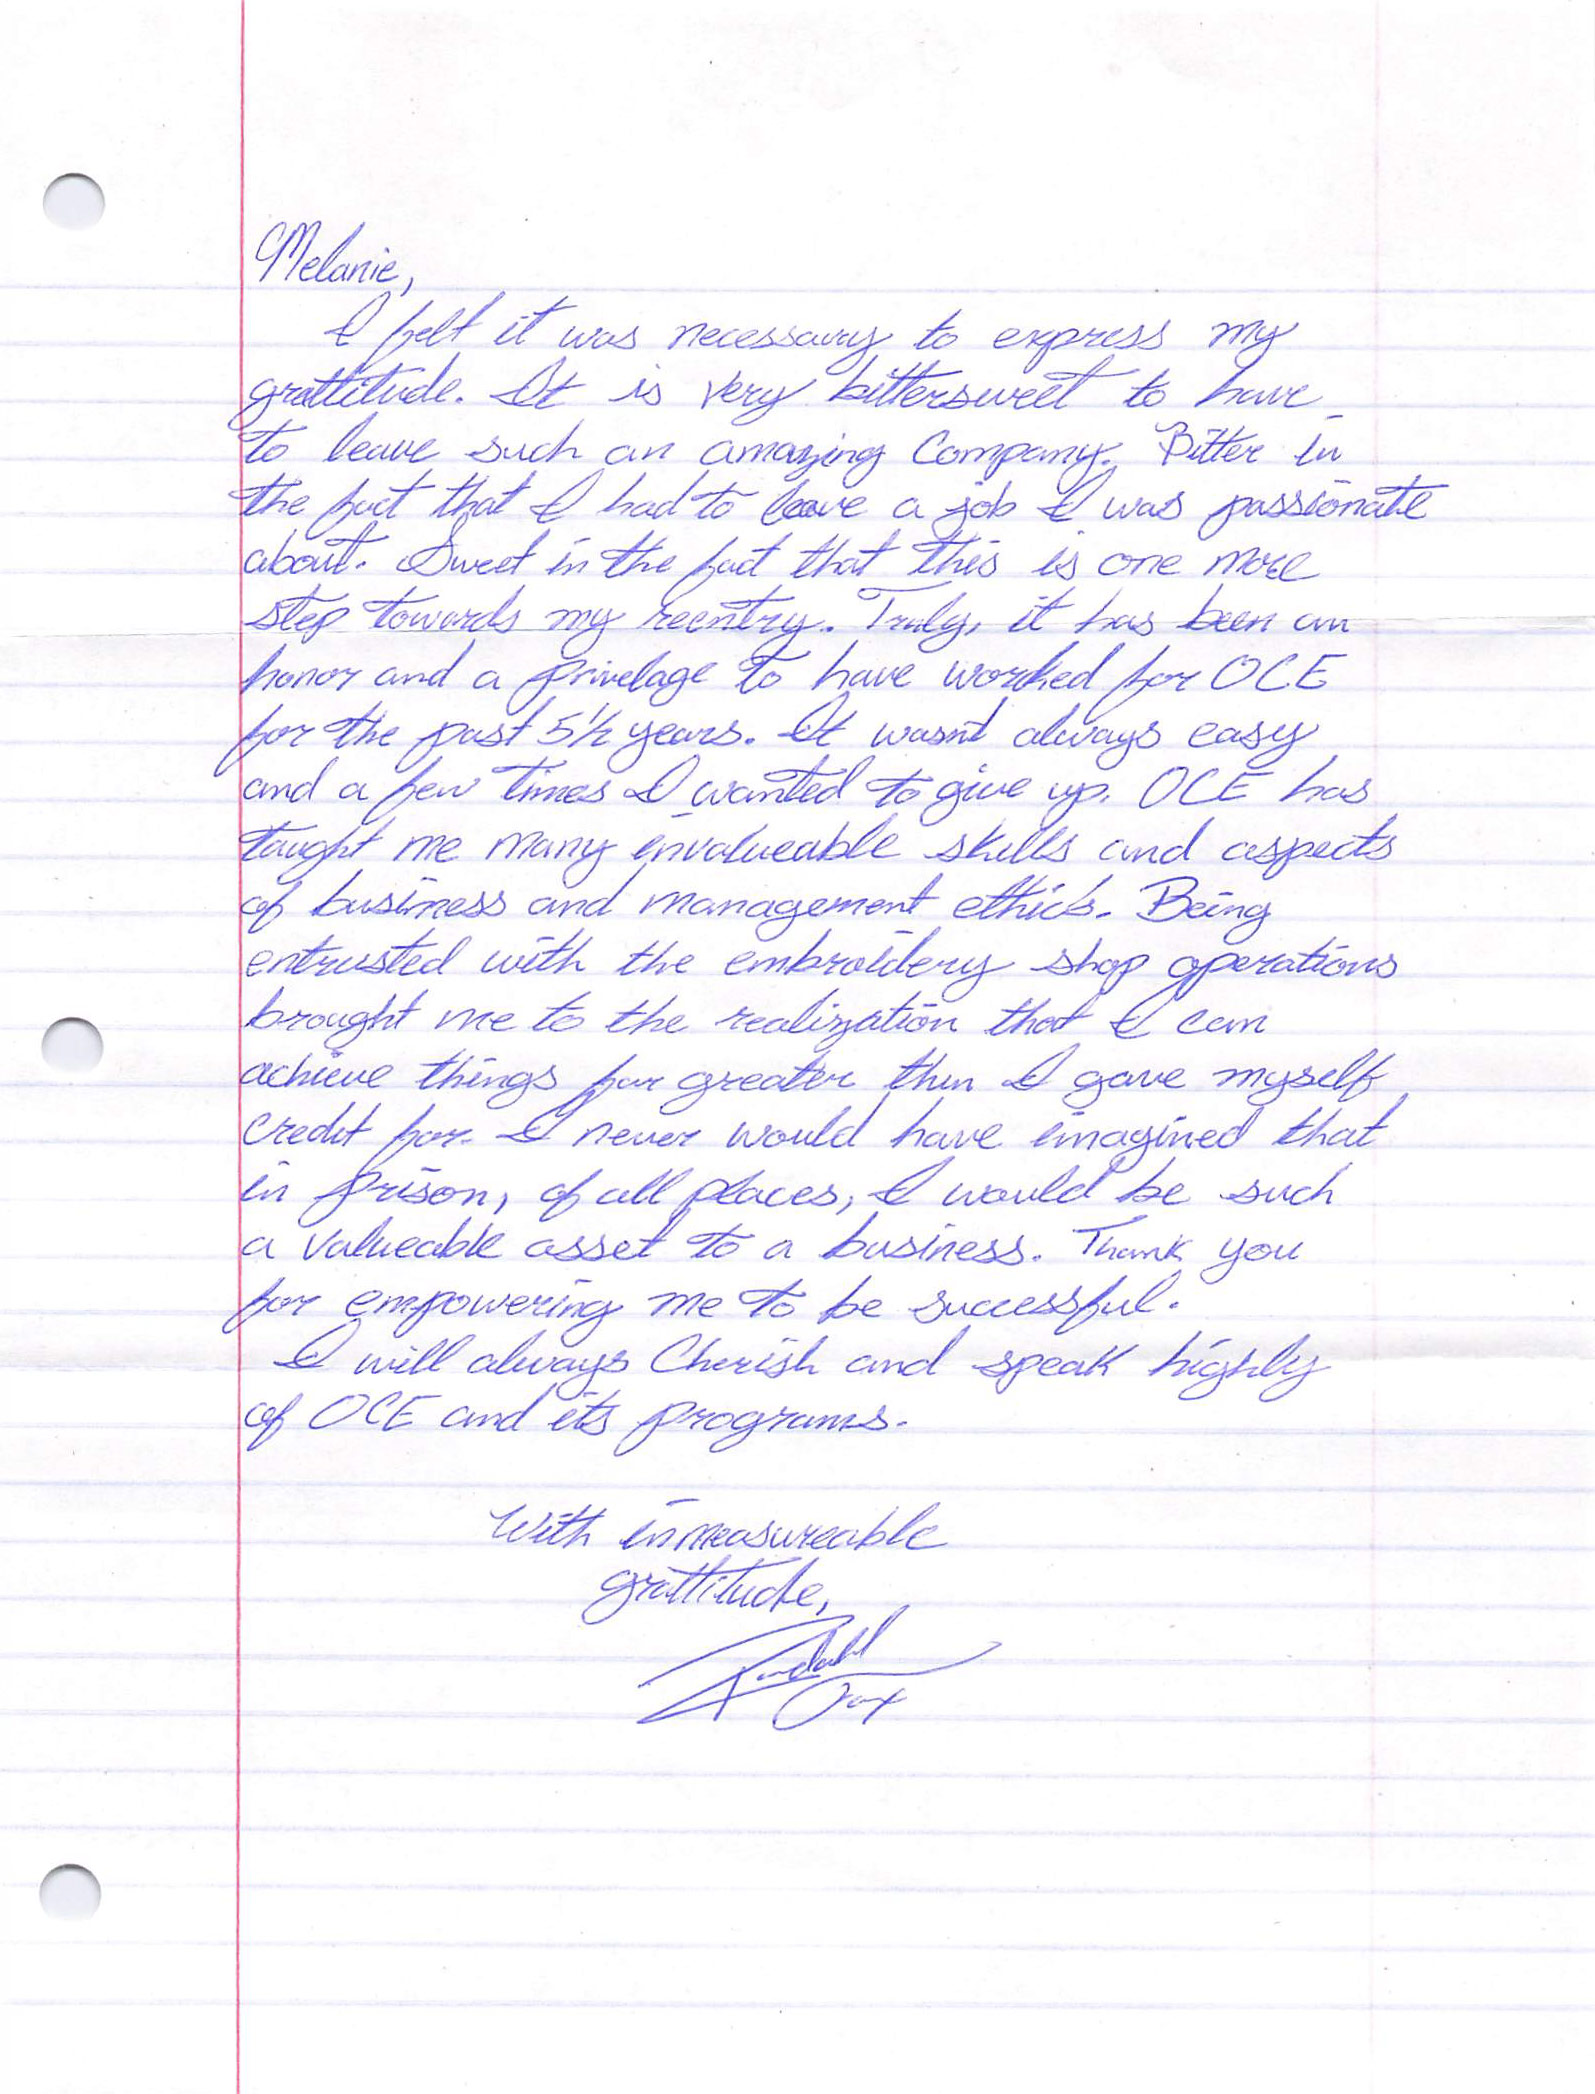 Melanie,
I felt it was necessary to express my
grattitude. It is very bittersweet to have
to leave such an amazing Company. Bitter in
the fact that I had to leave a job I was passionate
about. Sweet in the fact that this is one more
step towards my reentry. Truly, it has been an
honor and a privelage to have worked for OCE
for the past 5½ years. It wasn't always easy
and a few times I wanted to give up. OCE has
taught me many invalueable skills and aspects
of business and management ethics. Being
entrusted with the embroidery shop operations
brought me to the realization that I can
achieve things far greater then I gave myself
credit for. I never would have imagined that
in prison, of all places, I would be such
a valueable asset to a business. Thank you
for empowering me to be successful.
I will always Cherish and speak highly
of OCE and it's programs.
With inmeasureable
grattitude,
Randall